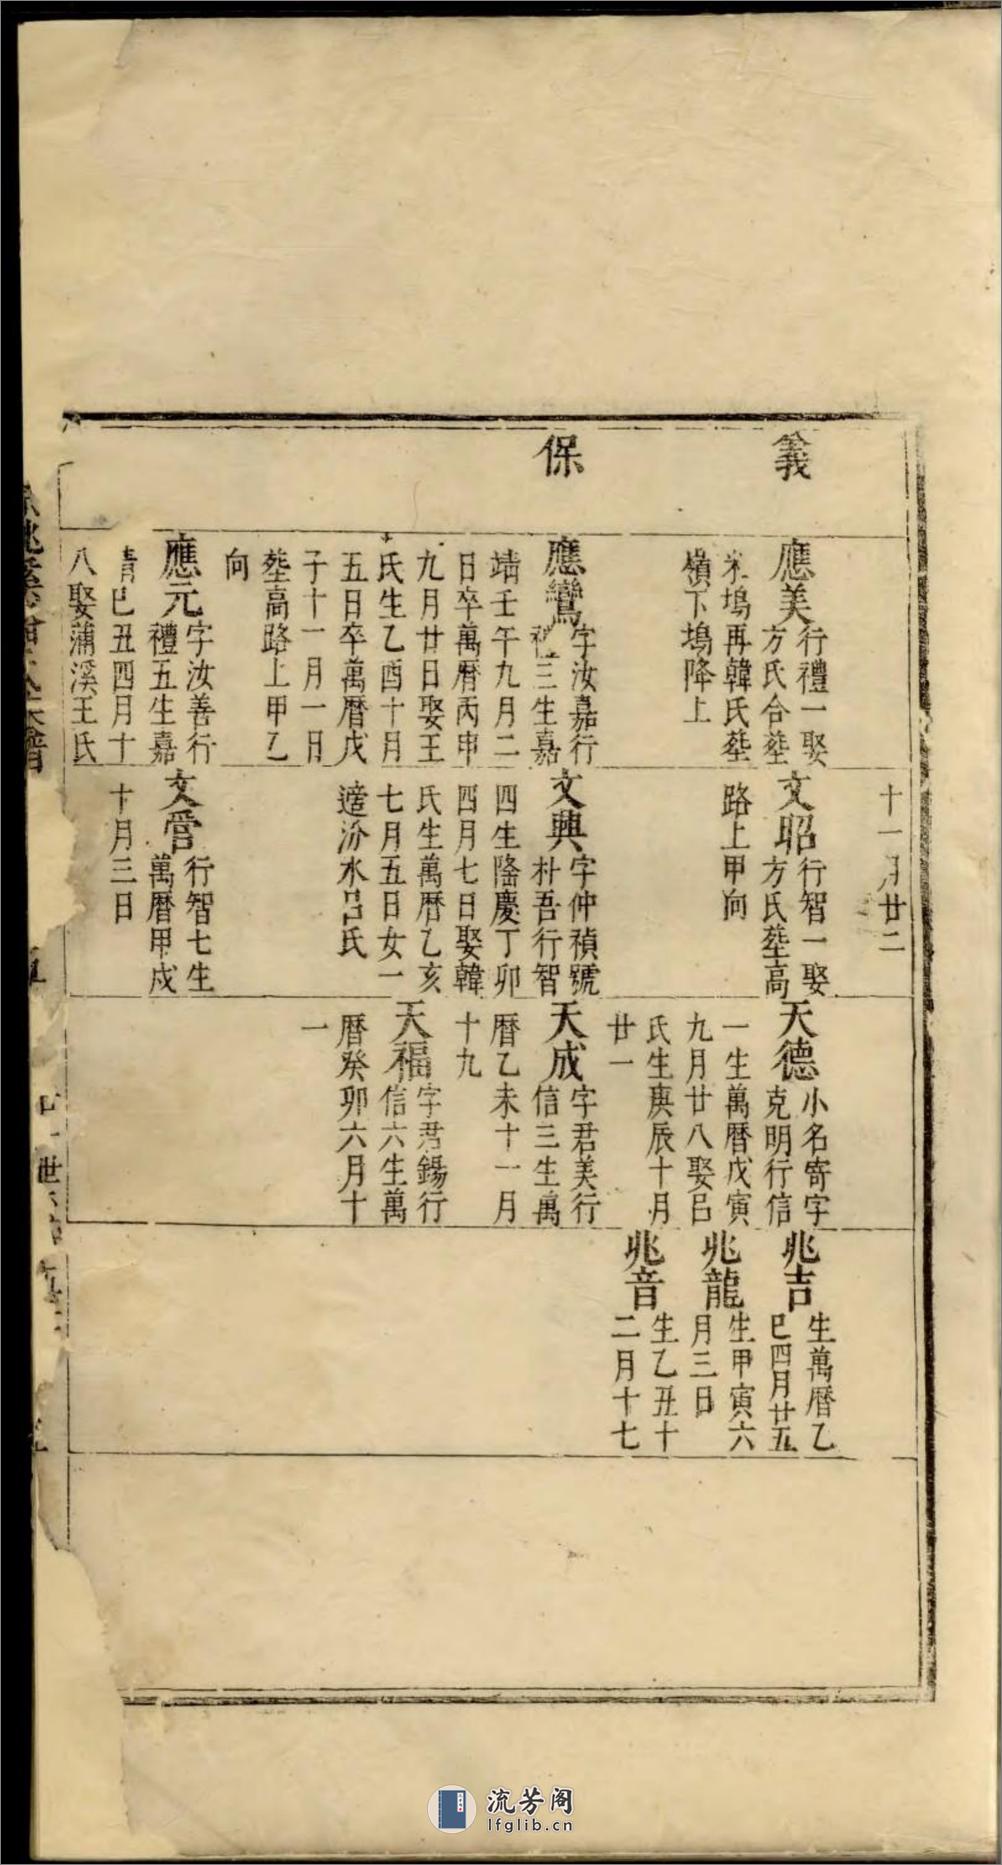 義
保
應美
行禮一娶
方氏合塟
米塢再韓氏塟
嶺下塢降上
應鸞
字汝嘉行
禮三生嘉
靖壬午九月二
日卒萬曆丙申
九月廿日娶王
氏生乙酉十月
五日卒萬曆戊
子十一月一日
塟高路上甲乙
向
應元
字汝善行
禮五生嘉
靖巳丑四月十
八娶蒲溪王氏
十一月廿二
文昭
行智一娶
方氏塟高
路上甲向
文興
字仲禎號
朴吾行智
四生隆慶丁卯
四月七日娶韓
氏生萬曆乙亥
七月五日女一
適汾水呂氏
文管
行智七生
萬曆甲戍
十月三日
天德
小名寄字
克明行信
一生萬曆戊寅
九月廿八娶呂
氏生庚辰十月
廿一
天成
字君美行
信三生萬
曆乙未十一月
十九
天福
字君錫行
信六生萬
曆癸卯六月十
一
兆吉
生萬曆乙
巳四月廿五
兆龍
生甲寅六
月三日
兆音
生乙丑十
二月十七
流芳阁
lfglib.cn